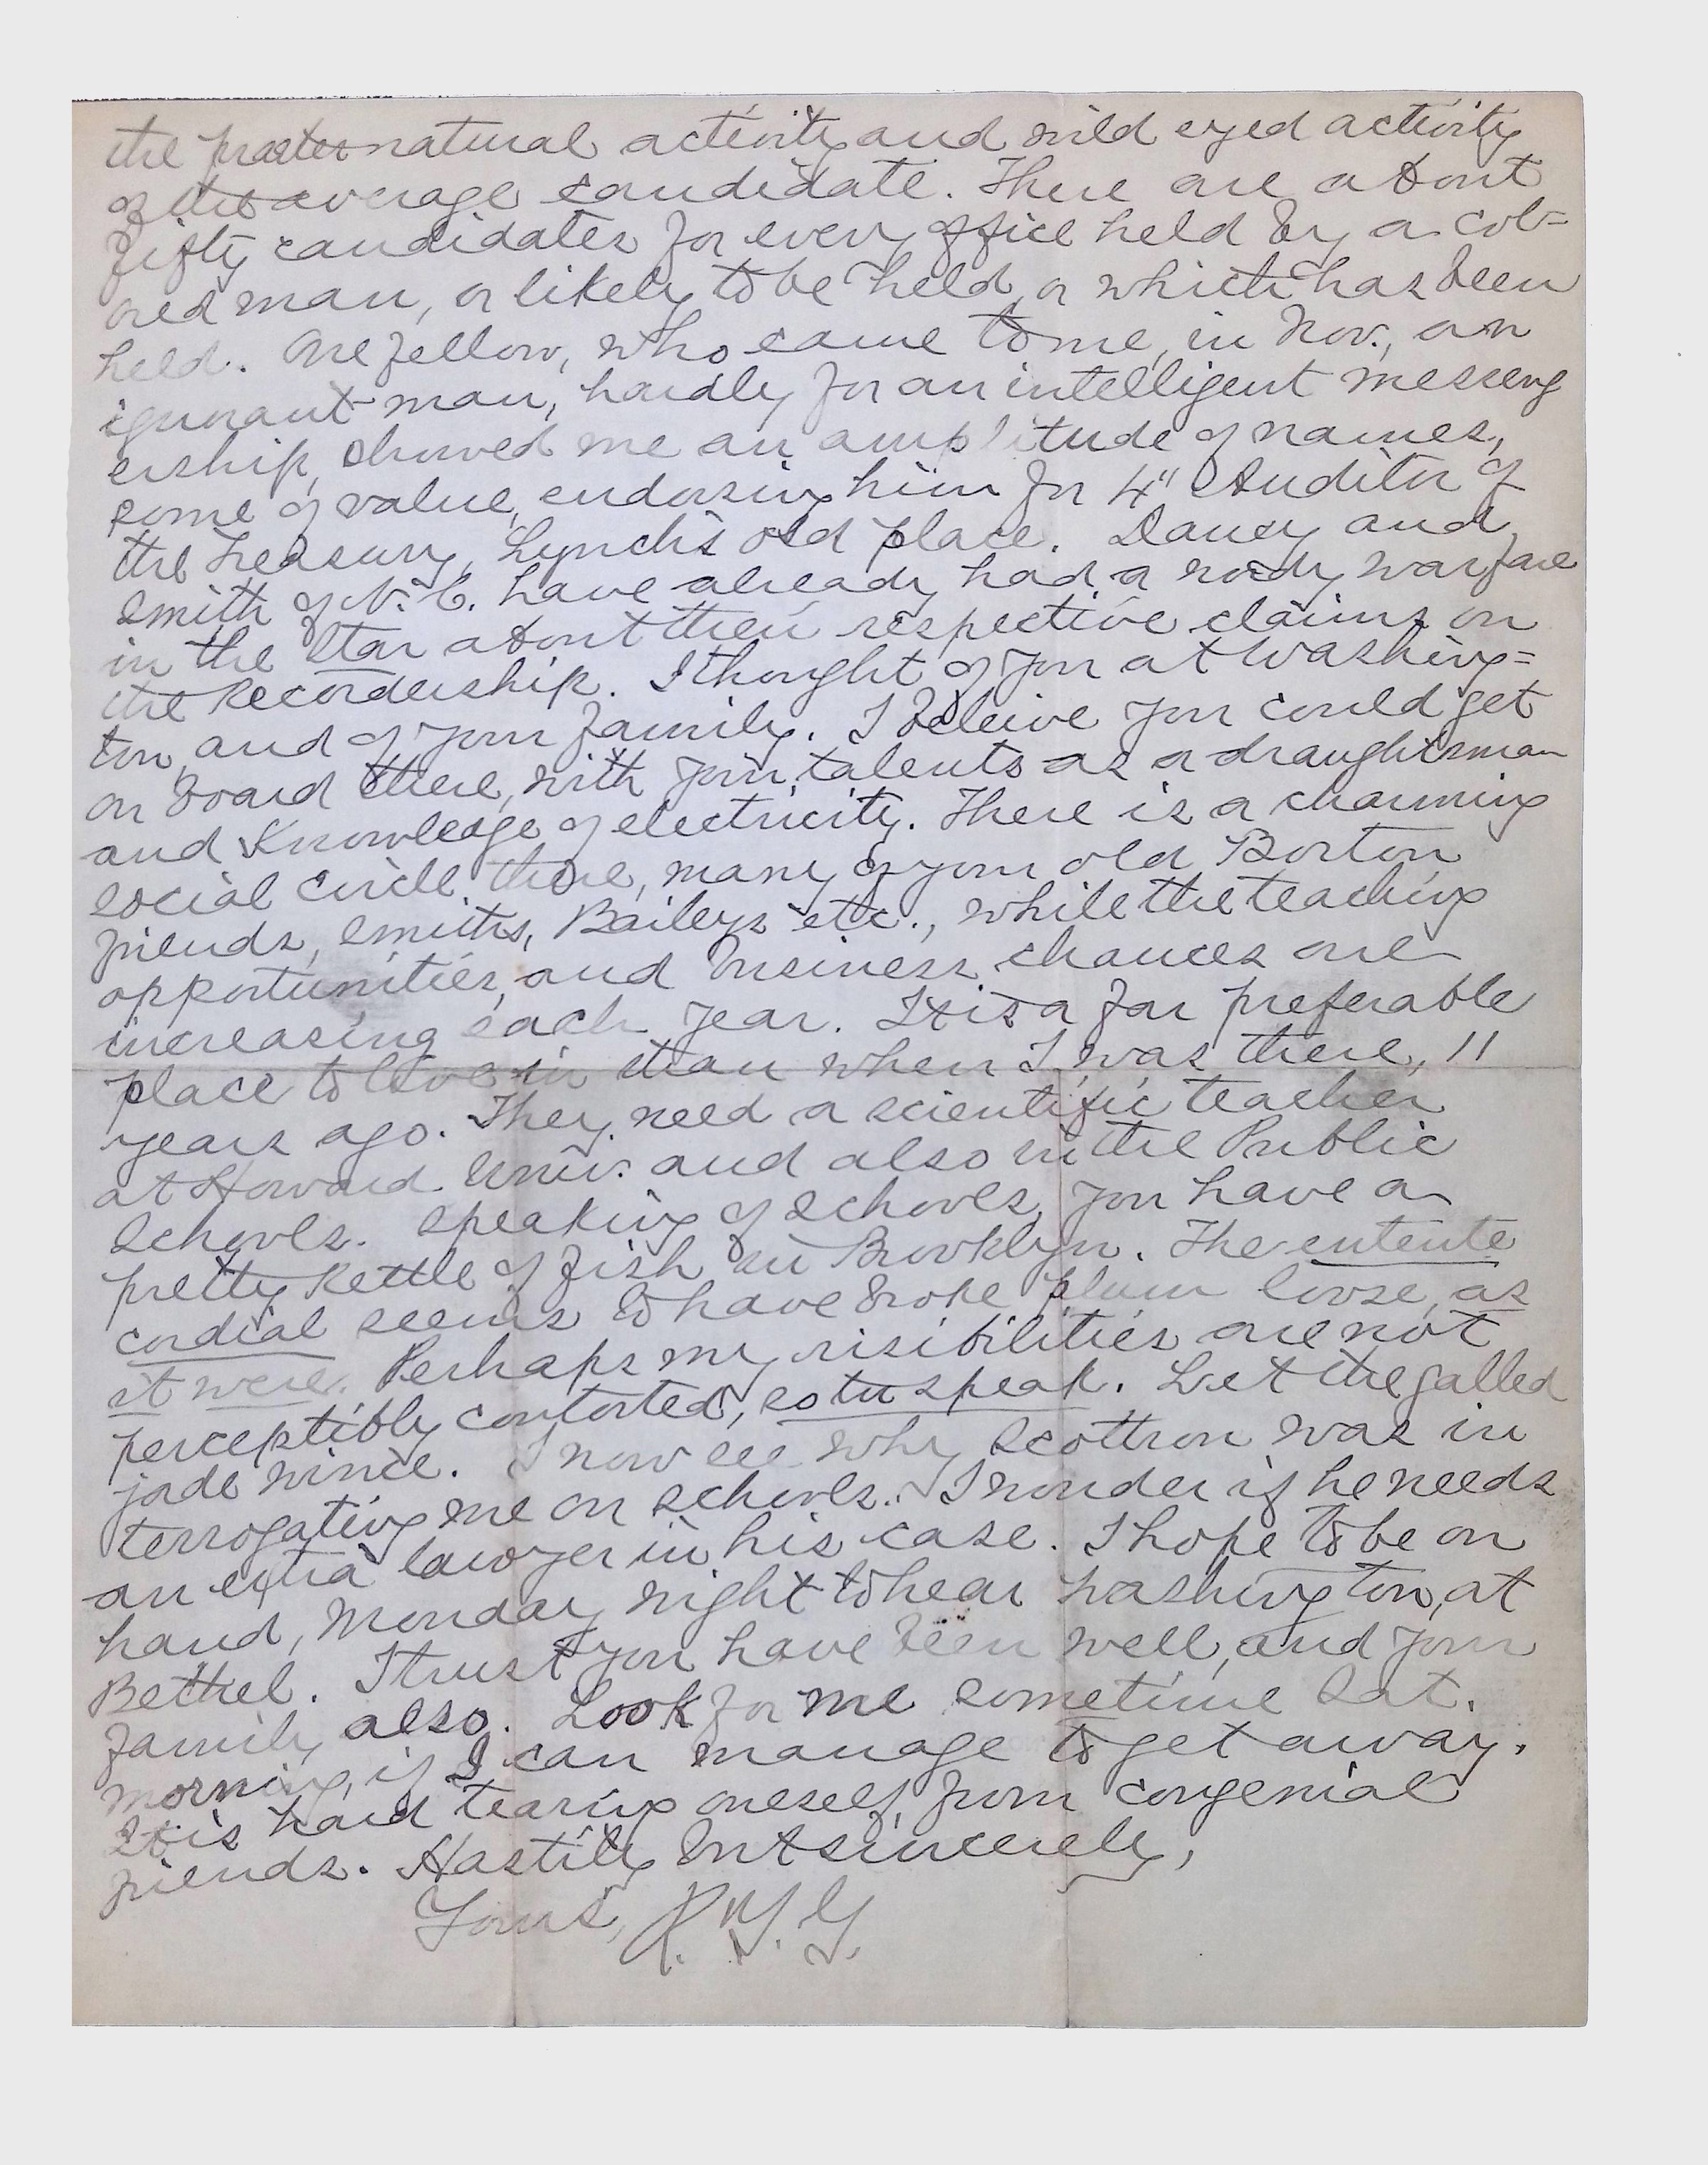 the praeternatural activity and wild eyed activity
of the average candidate. There are about
fifty candidates for every office held by a col=
ored man, or likely to be held, or which has been
held. One fellow, who came to me, in Nov., an
ignorant man, hardly for an intelligent messeng
ership, showed me an amplitude of names,
some of value, endorsing him for 4" Auditor of
the Treasury, Lynch's old place. Dancy and
Smith of N.C. have already had a wordy warfare
in the Star about their respective claims on
the Recordership. I thought of you at Washing=
ton, and of your family. I beleive you could get
on board there, with your talents as a draughtsman
and knowledge of electricity. There is a charming
social circle there, many of your old Boston
friends, Smiths, Baileys etc., while the teaching
opportunities, and business chances are
increasing each year. It is a far preferable
place to live in than when I was there, 11
years ago. They need a scientific teacher
at Howard Univ. and also in the Public
Schools. Speaking of schools, you have a
pretty kettle of fish in Brooklyn. The entente
cordial seems to have broke plum loose, as
it were. Perhaps my risibilities are not
perceptibly contorted, so tu speak. Let the galled
jade wince. I now see why Scottron was in
terrogating me on schools. I wonder if he needs
an extra lawyer in his case. I hope to be on
hand, Monday night to hear Washington, at
Bethel. I trust you have been well, and your
family also. Look for me sometime Sat.
morning, if I can manage to get away.
It is hard tearing oneself from congenial
friends. Hastily but sincerely,
Yours, R.M.G.